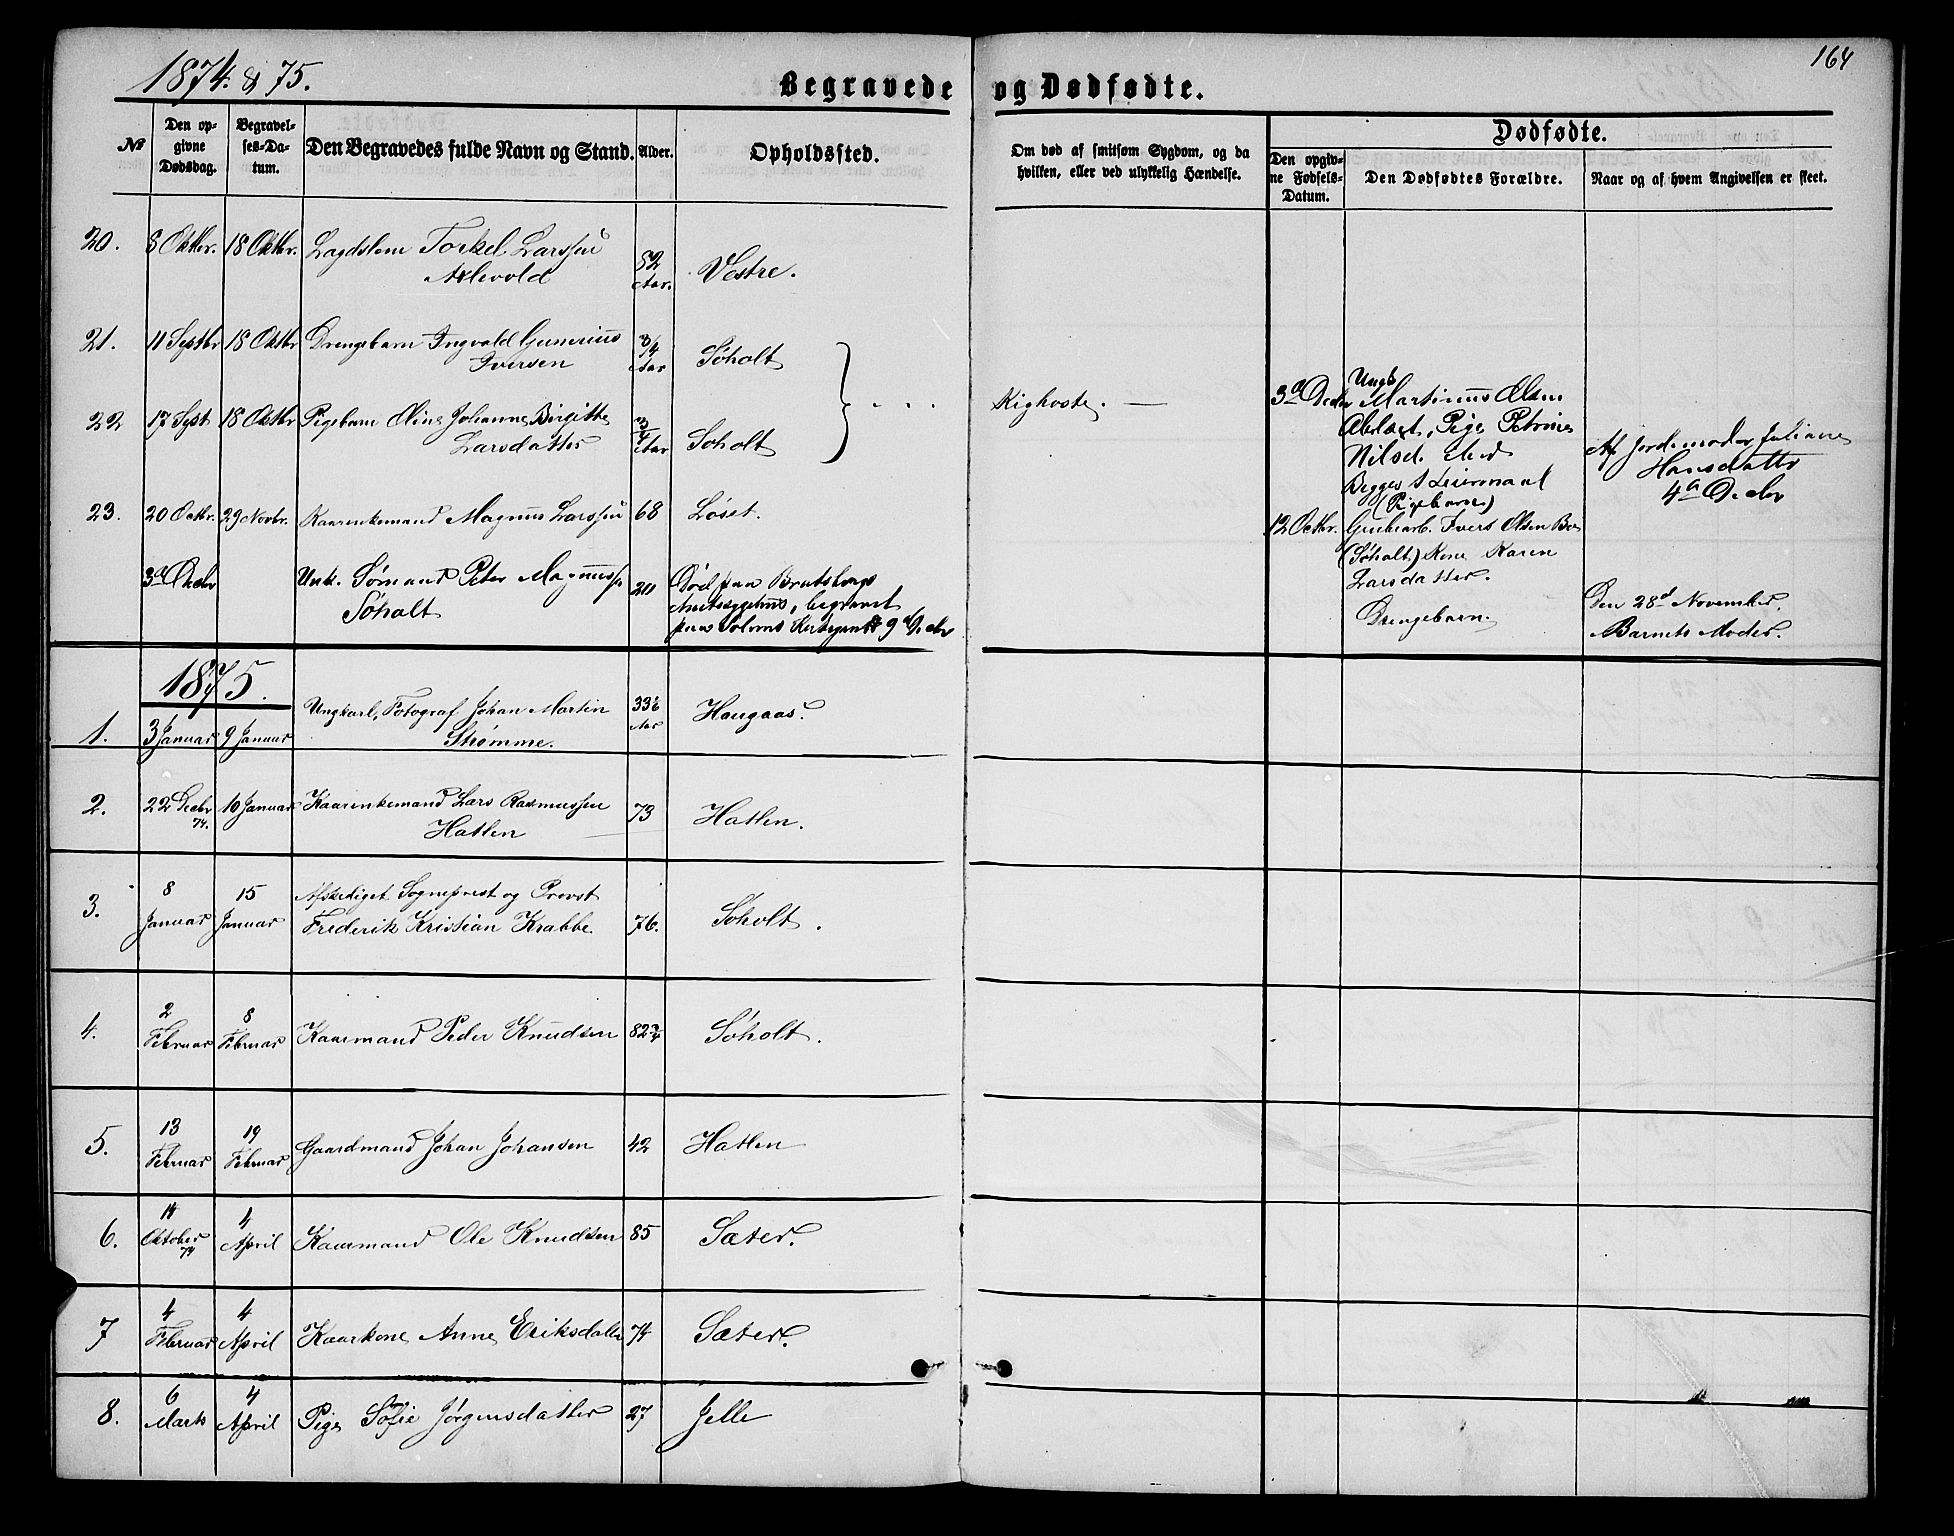 1874 & 75.
Begravede og Dødfødte.
164
№
Den op-
givne
Dødsdag.
Begravel-
ses-Da-
tum.
Den Begravedes fulde Navn og Stand.
Alder.
Opholdssted.
Om død af smitsom Sygdom, og da
hvilken, eller ved ulykkelig Hændelse.
Dødfødte.
Den opgiv-
ne Fødsels-
Datum.
Den Dødfødtes Forældre.
Naar og af hvem Angivelsen er skeet.
20. 8 Oktbr. 18 Oktbr. Lagdslem Torkel Larssen
Aslevold
52
Aar.
Vestre.
21. 11 Septbr 18 Oktbr Drengebarn Ingvald Gunerius
Iversen
3/4
Aar
Søholt
22 17 Sept 18 Oktbr Pigebarn Oline Johanne Birgitte
Larsdatter
3/4
Aar
Søholt
Kighoste. —
3d Decbr Ungk Martinus Olsen
Pige Petrine
Nilsd.
Begges 1 Leiermaal
(Pigebarn)
Af Jordemoder Juliane
Hansdatter
4d Decbr
23. 20 Octbr. 29 Novbr. Kaarenkemand Magnus Larssen 68 Løset.
12 Octbr. Grubearb. Ivert Olsen
(Søholt) Kone Karen
Larsdatter.
Drengebarn.
Den 28d November.
Barnets Moder.
3d Decbr Unk. Sømand Peter Magnuss.
Søholt
20
Død paa Bratsbergs
Amtssygehus, begravet
paa Solums Kirkegaard 9d Decbr
1875.
1. 3 Januar 9 Januar Ungkarl, Fotograf Johan Martin
Strømme.
33½
Aar
Haugaas.
2. 22 Decbr
74.
10 Januar Kaarenkemand Lars Rasmussen
Hatlen
73 Hatlen.
3. 8
Januar
15
Januar
Afskediget Sogneprest og Provst
Frederik Kristian Krabbe.
76. Søholt.
4. 2
Februar
8
Februar
Kaarmand Peder Knudsen 82 3/4 Søholt.
5. 13
Februar
19
Februar
Gaardmand Johan Johansen 42 Hatlen
6. 14
Oktober
74
4
April
Kaarmand Ole Knudsen 85 Sæter.
7 4
Februar
4
April
Kaarkone Anne Eriksdatter 74 Sæter.
8. 6
Marts
4
April
Pige Sofie Jørgensdatter 27 Jelle